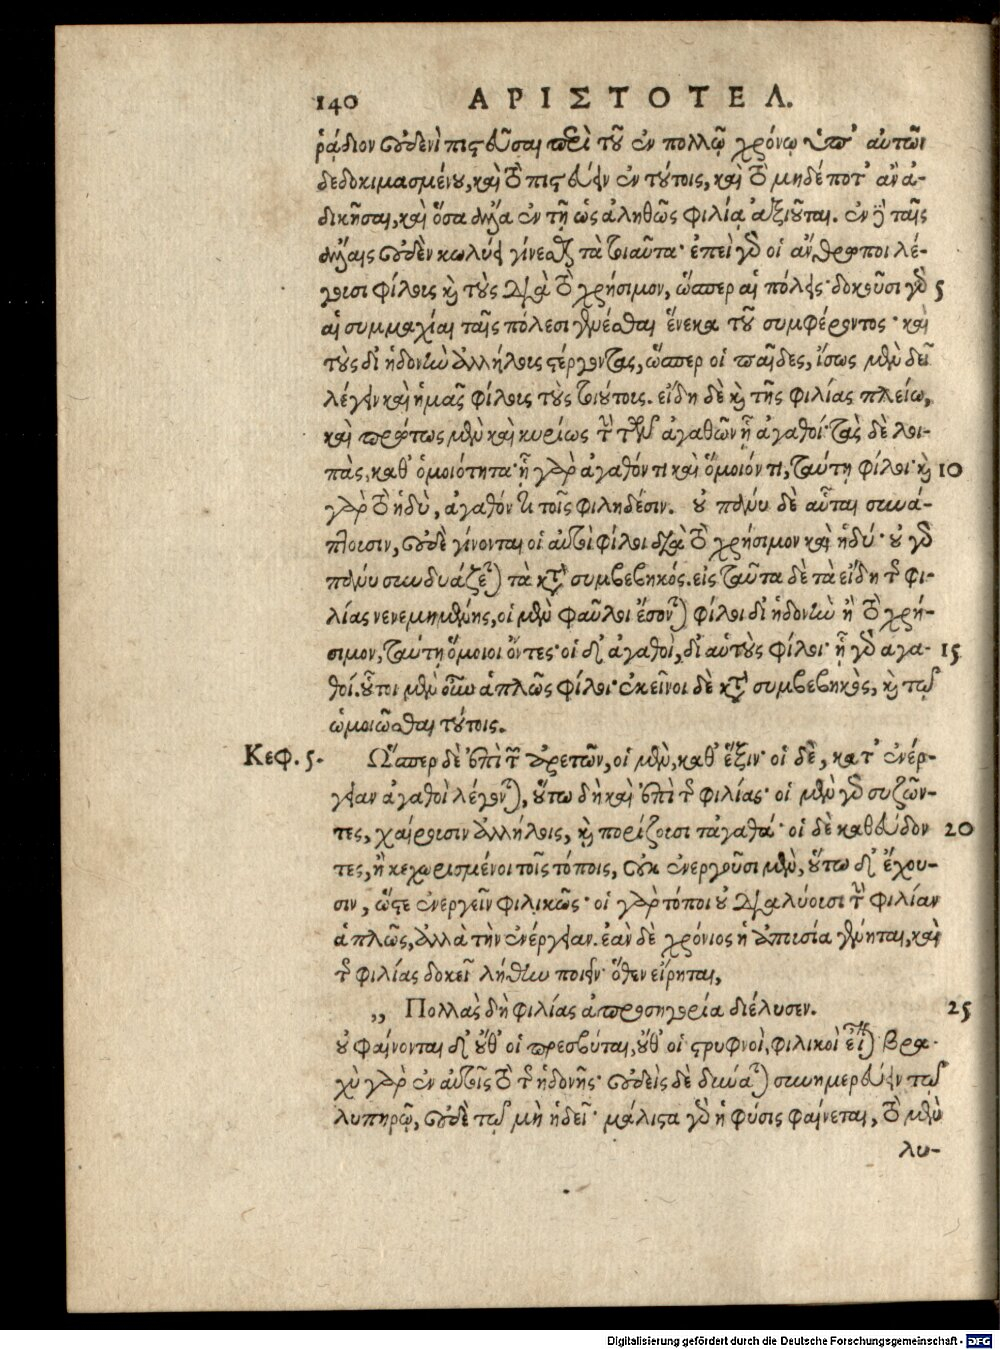 140 ΑΡΙΣΤΟΤΕΛ.
ῥᾴδιον οὐδενὶ πιστεῦσαι περὶ τοῦ ἐν πολλῷ χρόνῳ ὑπ' αὐτῶν
δεδοκιμασμένου, καὶ τὸ πιστεύειν ἐν τούτοις, καὶ τὸ μηδέποτ' ἂν ἀ-
δικῆσαι, καὶ ὅσα ἄλλα ἐν τῇ ὡς ἀληθῶς φιλίᾳ ἀξιοῦται. ἐν δὲ ταῖς
ἄλλαις οὐδὲν κωλύει γίνεσθαι τὰ τοιαῦτα· ἐπεὶ γὸ οἱ ἄνθρωποι λέ-
γουσι φίλους καὶ τοὺς διὰ τὸ χρήσιμον, ὥσπερ αἱ πόλεις· δοκοῦσι γὸ 5
αἱ συμμαχίαι ταῖς πόλεσι γενέσθαι ἕνεκα τοῦ συμφέροντος· καὶ
τοὺς δι' ἡδονὴν ἀλλήλους στέργοντας, ὥσπερ οἱ παῖδες, ἴσως μὲν δεῖ
λέγειν καὶ ἡμᾶς φίλους τοὺς τοιούτους. εἴδη δὲ καὶ τῆς φιλίας πλείω,
καὶ πρώτως μὲν καὶ κυρίως τὴν τῶν ἀγαθῶν ᾗ ἀγαθοί· τὰς δὲ λοι-
πὰς, καθ' ὁμοιότητα· ᾗ γὰρ ἀγαθόν τι καὶ ὅμοιόν τι, ταύτῃ φίλοι· καὶ 10
γὰρ τὸ ἡδὺ, ἀγαθόν τι τοῖς φιληδέσιν. οὐ πάνυ δὲ αὗται συνά-
πτουσιν, οὐδὲ γίνονται οἱ αὐτοὶ φίλοι διὰ τὸ χρήσιμον καὶ ἡδύ· οὐ γὸ
πάνυ συνδυάζεται τὰ κατὰ συμβεβηκός. εἰς ταῦτα δὲ τὰ εἴδη τῆς φι-
λίας νενεμημένης, οἱ μὲν φαῦλοι ἔσονται φίλοι δι' ἡδονὴν ἢ τὸ χρή-
σιμον, ταύτῃ ὅμοιοι ὄντες· οἱ δ' ἀγαθοὶ, δι' αὑτοὺς φίλοι· ᾗ γὸ ἀγα- 15
θοί. οὗτοι μὲν οὖν ἁπλῶς φίλοι· ἐκεῖνοι δὲ κατὰ συμβεβηκὸς, καὶ τῷ
ὡμοιῶσθαι τούτοις.
Κεφ. 5. Ὥσπερ δὲ ἐπὶ τῶν ἀρετῶν, οἱ μὲν, καθ' ἕξιν· οἱ δὲ, κατ' ἐνέρ-
γειαν ἀγαθοὶ λέγονται, οὕτω δὴ καὶ ἐπὶ τῆς φιλίας· οἱ μὲν γὸ συζῶν-
τες, χαίρουσιν ἀλλήλοις, καὶ πορίζουσι τἀγαθά· οἱ δὲ καθεύδον 20
τες, ἢ κεχωρισμένοι τοῖς τόποις, οὐκ ἐνεργοῦσι μὲν, οὕτω δ' ἔχου-
σιν, ὥστε ἐνεργεῖν φιλικῶς· οἱ γὰρ τόποι οὐ διαλύουσι τὴν φιλίαν
ἁπλῶς, ἀλλὰ τὴν ἐνέργειαν. ἐὰν δὲ χρόνιος ἡ ἀπουσία γένηται, καὶ
τῆς φιλίας δοκεῖ λήθην ποιεῖν· ὅθεν εἴρηται,
„ Πολλὰς δὴ φιλίας ἀπροσηγορία διέλυσεν. 25
οὐ φαίνονται δ' οὔθ' οἱ πρεσβύται, οὔθ' οἱ στρυφνοὶ, φιλικοὶ εἶναι· βρα-
χὺ γὰρ ἐν αὐτοῖς τὸ τῆς ἡδονῆς· οὐδεὶς δὲ δύναται συνημερεύειν τῷ
λυπηρῷ, οὐδὲ τῷ μὴ ἡδεῖ· μάλιστα γὸ ἡ φύσις φαίνεται, τὸ μὲν
λυ-
Digitalisierung gefördert durch die Deutsche Forschungsgemeinschaft - DFG